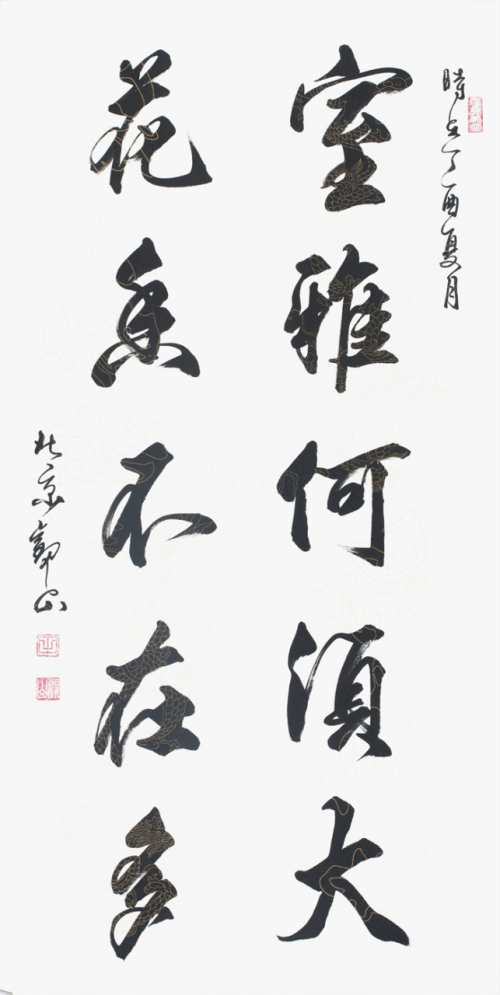 時在丁酉夏月
室雅何須大
花香不在多
北京